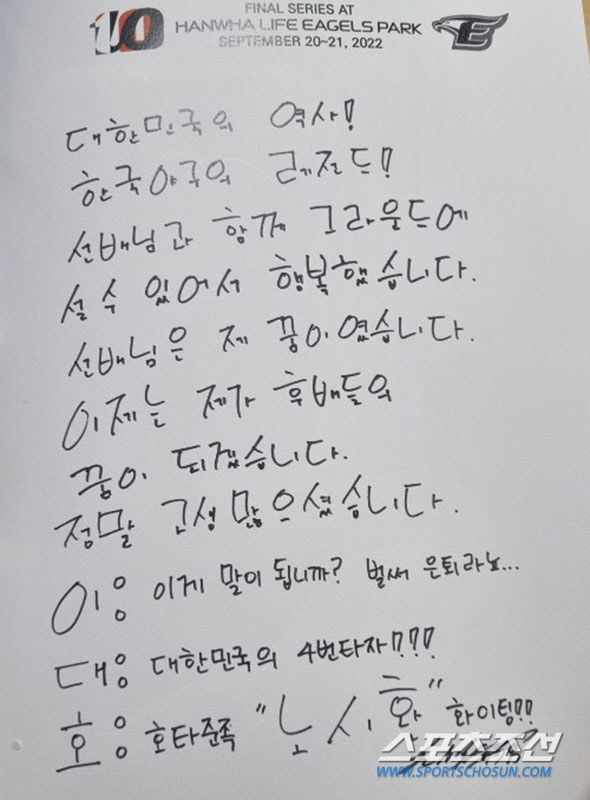 10
FINAL SERIES AT
HANWHA LIFE EAGELS PARK
SEPTEMBER 20~21, 2022
E
대한민국의 역사!
한국야구의 레전드!
선배님과 함께 그라운드에
설 수 있어서 행복했습니다.
선배님은 제 꿈이였습니다.
이제는 제가 후배들의
꿈이 되겠습니다.
정말 고생 많으셨습니다.
이 이게 말이 됩니까? 벌써 은퇴라뇨...
대 대한민국의 4번타자???
호 호타준족 "노시환" 화이팅!!
스포츠조선
WWW.SPORTSCHOSUN.COM